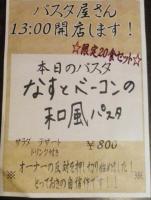 パスタ屋さん
13:00開店します!
☆限定20食セット☆
本日のパスタ
なすとベーコンの
和風パスタ
サラダ デザート
ドリンク付き
¥800
オーナーの反対を押し切り始めました!
とっておきの自信作です!!